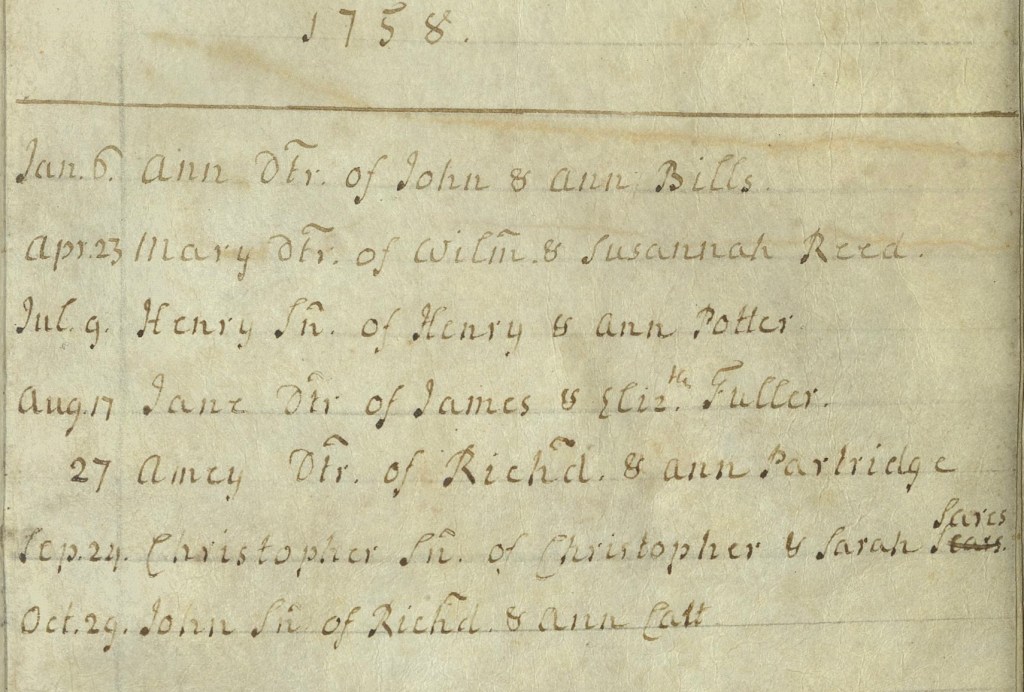 1758.
Jan. 6. Ann Dtr. of John & Ann Bills.
Apr. 23 Mary Dtr. of Wilm. & Susannah Reed.
Jul. 9. Henry Sn. of Henry & Ann Potter
Aug. 17 Jane Dtr of James & Eliz.th Fuller.
27 Amey Dtr. of Richd. & Ann Partridge
Sares
Sep. 24. Christopher Sn. of Christopher & Sarah Sears.
Oct. 29. John Sn of Richd. & Ann Catt